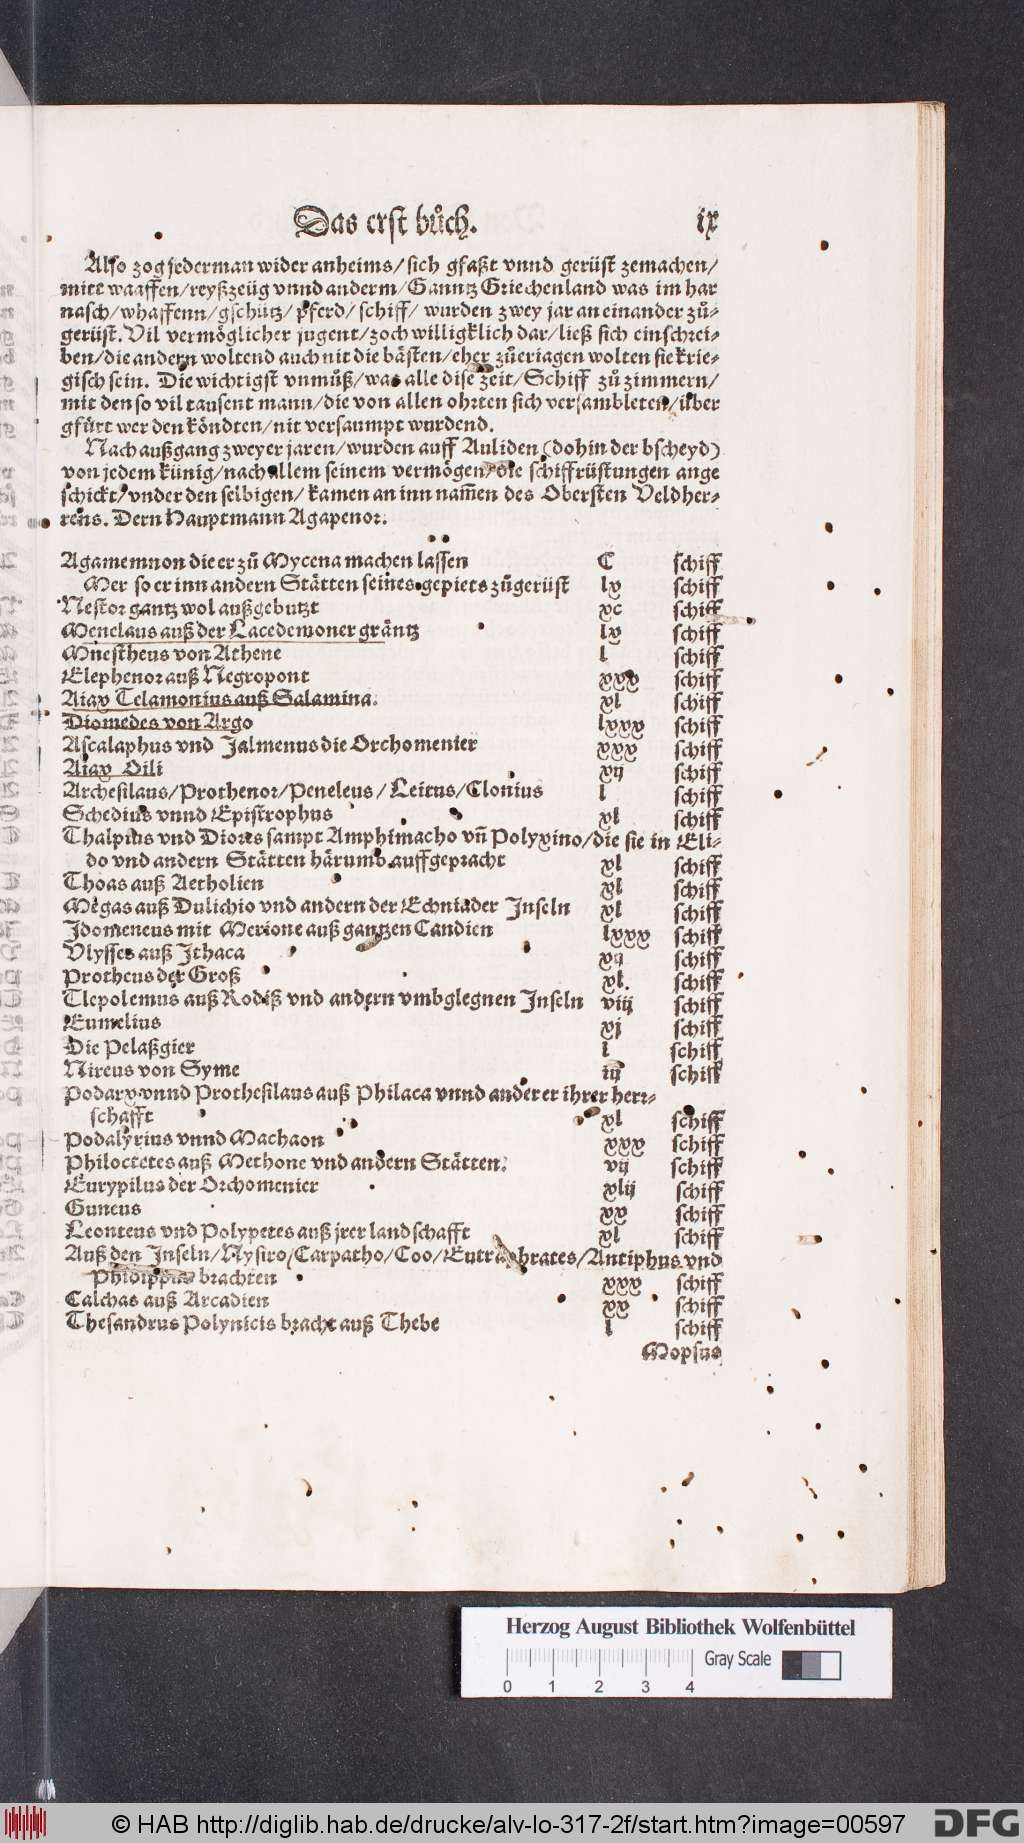 Das erst bůch. ix
Also zog jederman wider anheims/ sich gfaßt vnnd gerüst zemachen/
mitt waaffen/ reyßzeüg vnnd anderm/ Ganntz Griechenland was im har
nasch/ whaffenn/ gschütz/ pferd/ schiff/ wurden zwey jar an einander zů-
gerüst. Vil vermöglicher jugent/ zoch willigklich dar/ ließ sich einschrei-
ben/ die andern woltend auch nit die bästen/ eher zůeriagen wolten sie krie-
gisch sein. Die wichtigst vnmůß/ was alle dise zeit/ Schiff zů zimmern/
mit den so vil tausent mann/ die von allen ohrten sich versambleten/ über
gfürt werden köndten/ nit versaumpt wurdend.
Nach außgang zweyer jaren/ wurden auff Auliden (dohin der bscheyd)
von jedem künig/ nach allem seinem vermögen/ die schiffrüstungen ange
schickt/ vnder den selbigen/ kamen an inn nam̃en des Obersten Veldher-
rens. Dern Hauptmann Agapenor.
Agamemnon die er zů Mycena machen lassen C schiff
Mer so er inn andern Stätten seines gepiets zůgerüst lx schiff
Nestor gantz wol außgebutzt xc schiff
Menelaus auß der Lacedemoner gräntz lx schiff
Mnestheus von Athene l schiff
Elephenor auß Negropont xxx schiff
Aiax Telamonius auß Salamina. xl schiff
Diomedes von Argo lxxx schiff
Ascalaphus vnd Jalmenus die Orchomenier xxx schiff
Aiax Oili xij schiff
Archesilaus/ Prothenor/ Peneleus/ Leitus/ Clonius l schiff
Schedius vnnd Epistrophus xl schiff
Thalpius vnd Diores sampt Amphimacho vñ Polyxino/ die sie in Eli-
do vnd andern Stätten härumb auffgepracht xl schiff
Thoas auß Aetholien xl schiff
Megas auß Dulichio vnd andern der Echniader Jnseln xl schiff
Jdomeneus mit Merione auß gantzen Candien lxxx schiff
Vlysses auß Jthaca xij schiff
Protheus der Groß xl. schiff
Tlepolemus auß Rodiß vnd andern vmbglegnen Jnseln viij schiff
Eumelius xj schiff
Die Pelaßgier l schiff
Nireus von Syme iij schiff
Podarx vnnd Prothesilaus auß Philaca vnnd anderer ihrer herr-
schafft xl schiff
Podalyrius vnnd Machaon xxx schiff
Philoctetes auß Methone vnd andern Stätten. vij schiff
Eurypilus der Orchomenier xlij schiff
Guneus xx schiff
Leonteus vnd Polypetes auß jrer landschafft xl schiff
Auß den Jnseln/ Nysiro/ Carpatho/ Coo/ Antiphus vnd
Phidippus brachten xxx schiff
Calchas auß Arcadien xx schiff
Thesandrus Polynicis bracht auß Thebe l schiff
Mopsus
Herzog August Bibliothek Wolfenbüttel
Gray Scale
0 1 2 3 4
© HAB http://diglib.hab.de/drucke/alv-lo-317-2f/start.htm?image=00597 DFG